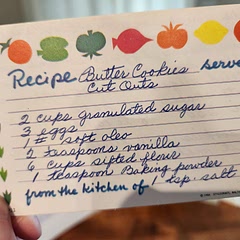 Recipe Butter Cookies serve
Cut Outs
2 cups granulated sugar
3 eggs
1 # soft oleo
2 teaspoons vanilla
6 cups sifted flour
1 teaspoon Baking powder
from the kitchen of 1 tsp. salt